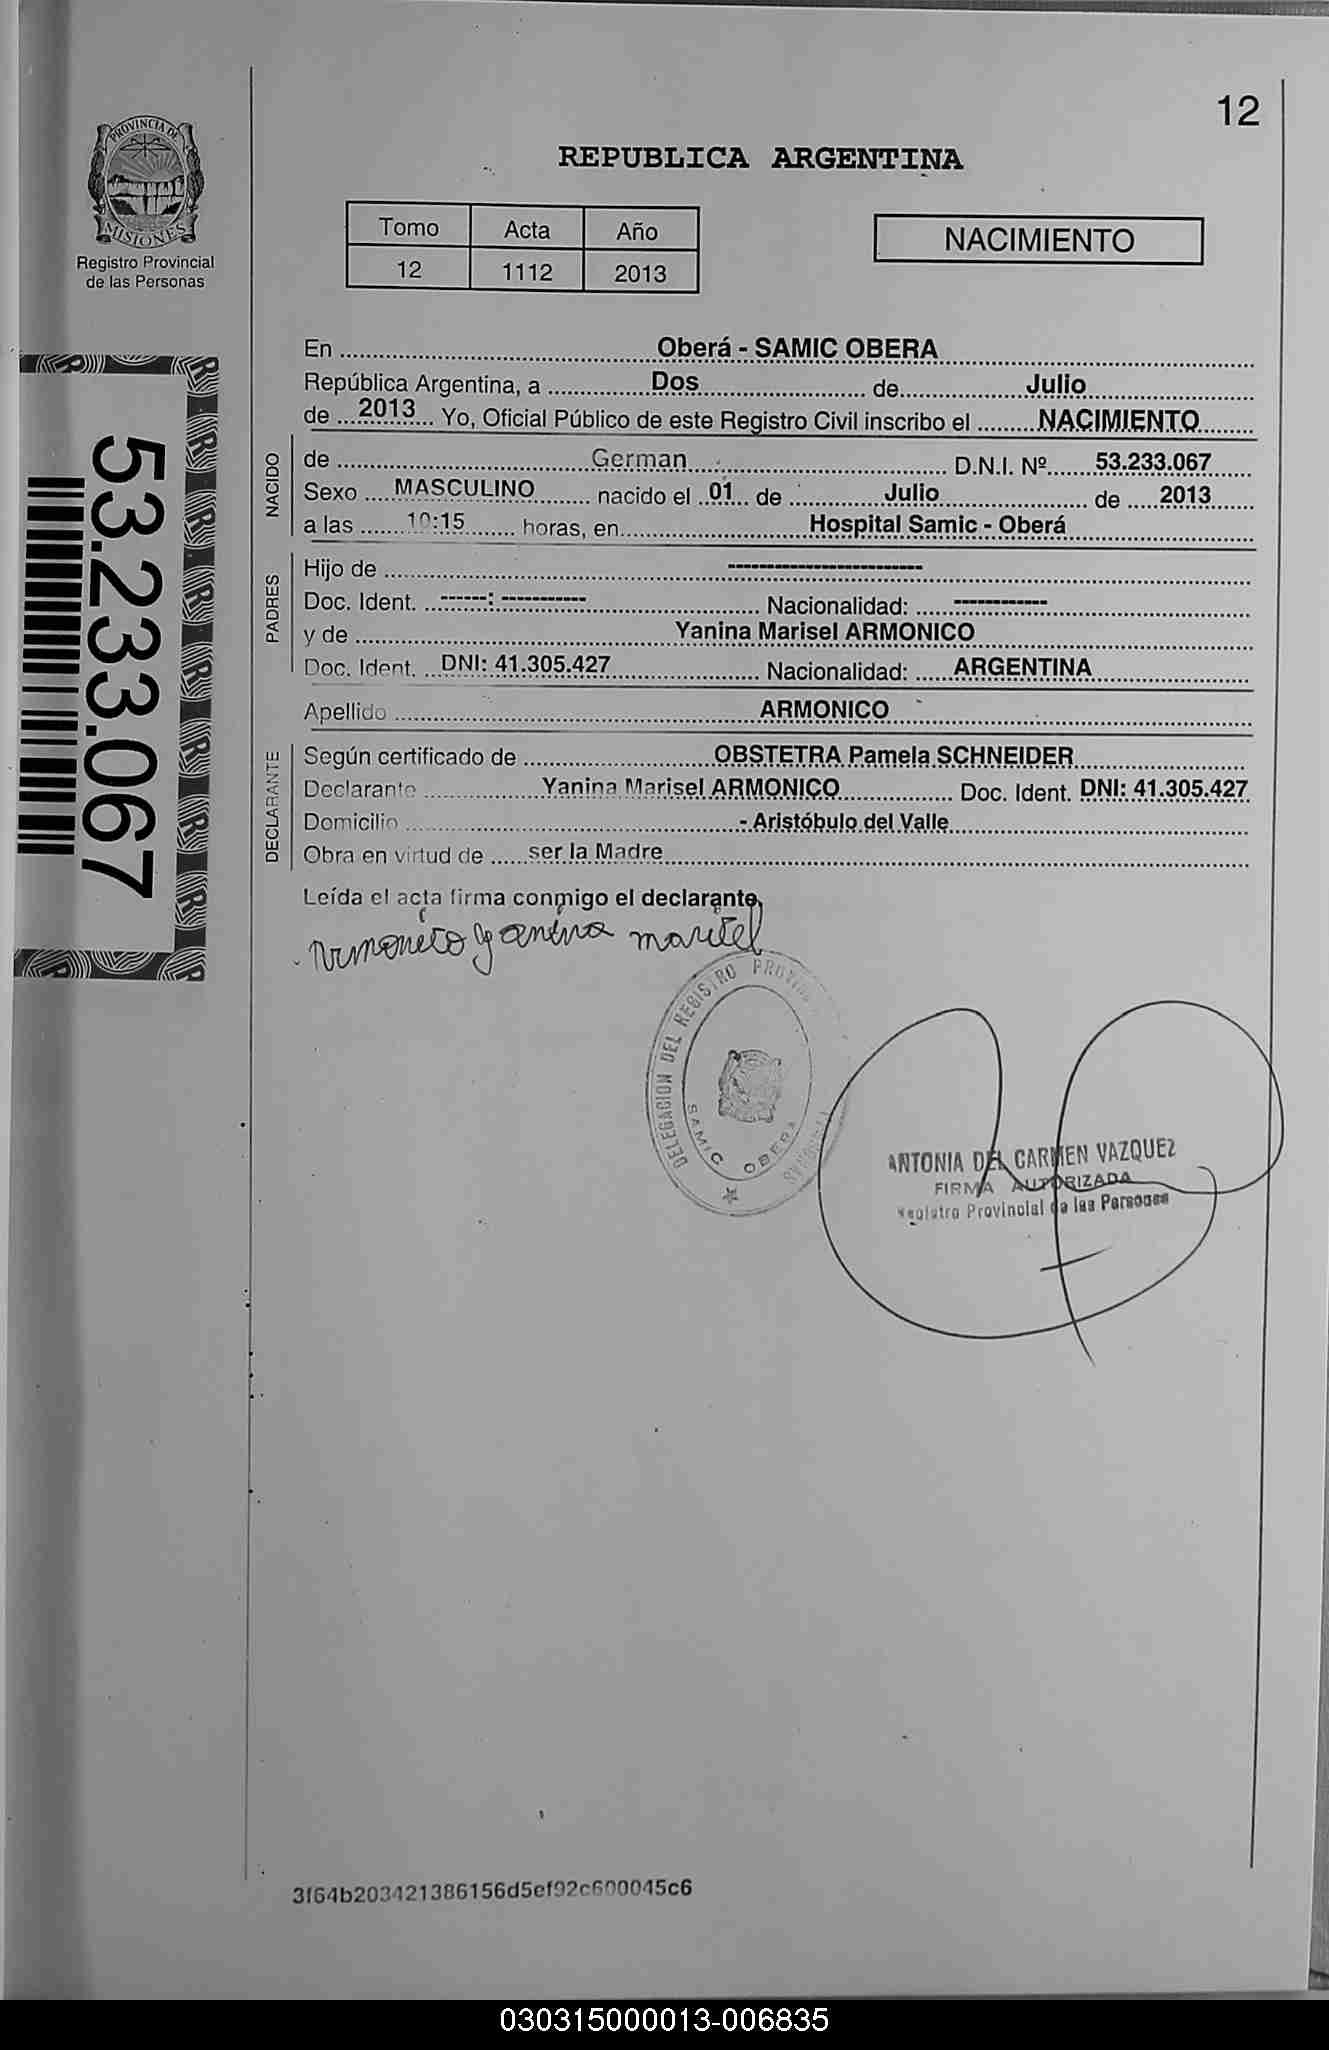 12
PROVINCIA DE
MISIONES
Registro Provincial
de las Personas
REPUBLICA ARGENTINA
Tomo Acta Año
12 1112 2013
NACIMIENTO
53.233.067
En Oberá - SAMIC OBERA
República Argentina, a Dos de Julio
de 2013 Yo, Oficial Público de este Registro Civil inscribo el NACIMIENTO
NACIDO
de German D.N.I. Nº 53.233.067
Sexo MASCULINO nacido el 01 de Julio de 2013
a las 10:15 horas, en Hospital Samic - Oberá
PADRES
Hijo de -------------------------
Doc. Ident. ------: ----------- Nacionalidad: ------------
y de Yanina Marisel ARMONICO
Doc. Ident. DNI: 41.305.427 Nacionalidad: ARGENTINA
Apellido ARMONICO
DECLARANTE
Según certificado de OBSTETRA Pamela SCHNEIDER
Declarante Yanina Marisel ARMONICO Doc. Ident. DNI: 41.305.427
Domicilio - Aristóbulo del Valle
Obra en virtud de ser la Madre
Leída el acta firma conmigo el declarante,
DELEGACION DEL REGISTRO
SAMIC OBERA
ANTONIA DEL CARMEN VAZQUEZ
FIRMA AUTORIZADA
Registro Provincial de las Personas
3f64b203421386156d5ef92c600045c6
030315000013-006835